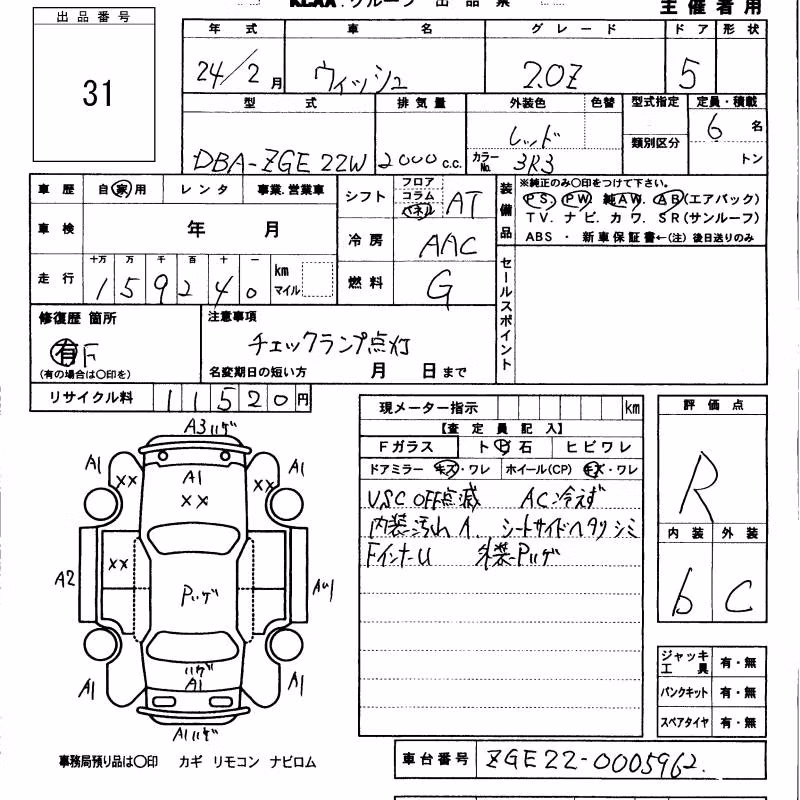 KLAA.グループ 出品票
主催者用
出品番号
31
年式 車名 グレード ドア 形状
24/2月 ウィッシュ 2.0Z 5
型式 排気量 外装色 色替 型式指定 定員・積載
DBA-ZGE22W 2000c.c. レッド 類別区分 6名
カラーNo. 3R3 トン
車歴 自家用 レンタ 事業.営業車
シフト フロア コラム パネル AT
装備品
※純正のみ○印をつけて下さい。
PS. PW. 純AW. AB(エアバック)
TV. ナビ. カワ. SR(サンルーフ)
ABS ・ 新車保証書←(注) 後日送りのみ
車検 年 月
冷房 AAC
走行 十万 万 千 百 十 一 km マイル
159240
燃料 G
セールスポイント
修復歴 箇所
有 F
(有の場合は○印を)
注意事項
チェックランプ点灯
名変期日の短い方 月 日まで
リサイクル料 11520円
現メーター指示 km
【査定員記入】
Fガラス ト 石 ヒビワレ
ドアミラー キズ・ワレ ホイール(CP) キズ・ワレ
VSC OFF点滅 AC冷えず
内装汚れ シートサイドヘタリ シミ
FインナーU 外装Pハゲ
評価点
R
内装 外装
b C
A3ハゲ
A1 XX A1 XX XX A1
A2 XX Pハゲ
A1 ハゲ A1 A1
A1ハゲ
ジャッキ工具 有・無
パンクキット 有・無
スペアタイヤ 有・無
事務局預り品は○印 カギ リモコン ナビロム
車台番号 ZGE22-0005962